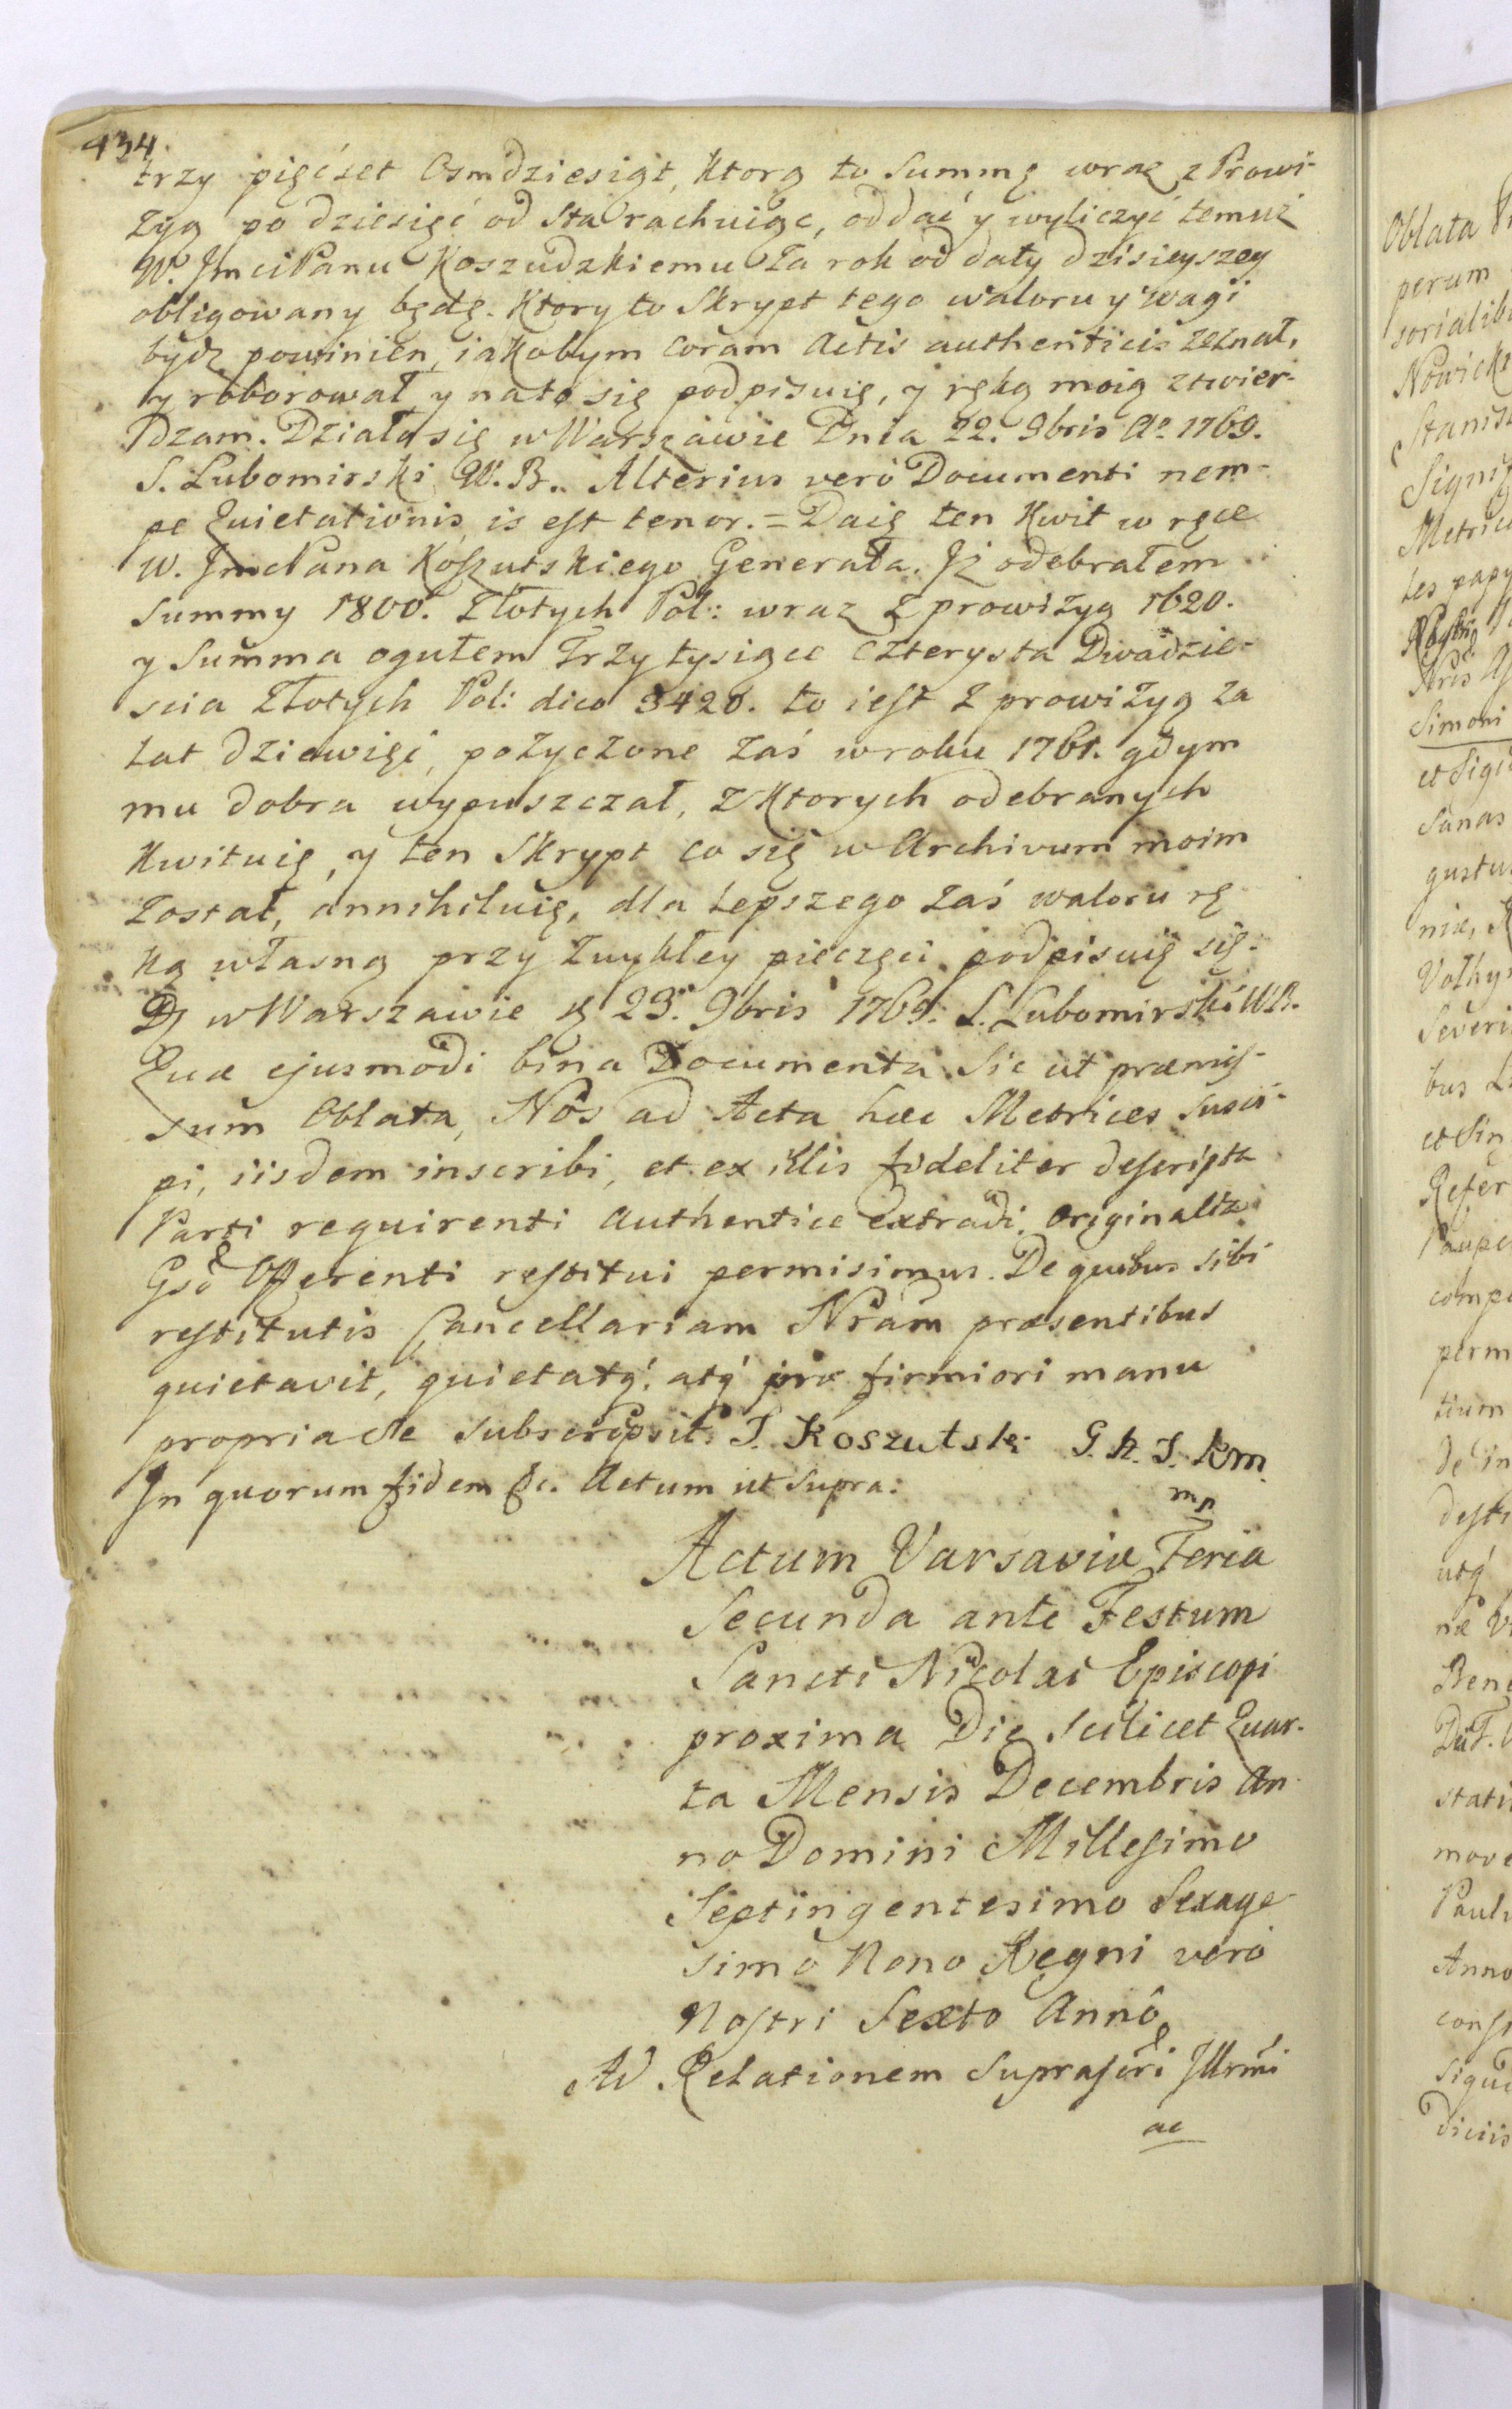 434.
trzy pięćset Osmdziesiąt, Ktorą to Summę wraz z Prowi-
zyą po dziesięć od Sta rachuiąc, oddać y wyliczyć temuż
W. Jmci Panu Koszudzkiemu za rok od daty dzisieyszey
obligowany będę. Ktory to Skrypt tego waloru y wagi
bydz powinien, iakobym coram Actis authenticis zeznał,
y roborował y na to się podpisuię, y ręką moią ztwier-
dzam. Działo się w Warszawie Dnia 22. 9bris Ao. 1769.
S. Lubomirski W. B.. Alterius verò Documenti nem-
pe Quietationis is est tenor. = Daię ten Kwit w ręce
W. Jmc Pana Koszutskiego Generała. Jż odebrałem
Summy 1800. Złotych Pol: wraz z prowizyą 1620.
y Summa ogułem Trzy tysiące czterysta Dwadzie-
scia Złotych Pol: dico 3420. to iest z prowizyą za
lat dziewięć, pożyczone zaś w roku 1761. gdym
mu dobra wypuszczał, z Ktorych odebranych
Kwituię, y ten Skrypt co się w Archivum moim
został, annihiluię, dla lepszego zaś waloru rę
ką własną przy zwykłey pieczęci podpisuię się.
D w Warszawie d 23. 9bris 1769. S. Lubomirski WB.
Quæ ejusmodi bina Documenta Sic ut præmis-
sum Oblata, Nos ad Acta hæc Metrices susci-
pi, iisdem inscribi, et ex illis fideliter descripta
Parti requirenti Authentice extradi. Originalia
Gsd Offerenti restitui permisimus. De quibus sibi
restitutis Cancellariam Nram præsentibus
quietavit, quietatq́, atq́ pro firmiori manu
propria se subscripsit. I. Koszutski G. K. J. Km.
mp
In quorum fidem &c. Actum ut Supra:
Actum Varsaviæ Feria
Secunda ante Festum
Sancti Nicolai Episcopi
proxima Die scilicet Quar-
ta Mensis Decembris An-
no Domini Millesimo
Septingentesimo Sexage-
simo Nono Regni verò
Nostri Sexto Annô
Ad Relationem Suprascri Illrmi
ac
Oblata
perum
sorialib
Nowick
Stanis
Signi
Metric
les papy
Simoni
et Sig
Sanas
gustu
niæ,
Volhy
Severi
bus
et Sin
Refer
Paupe
comp
perm
de in
desti
utq́
Bene
stati
move
Paul
Anno
consi
Sigu
diciis